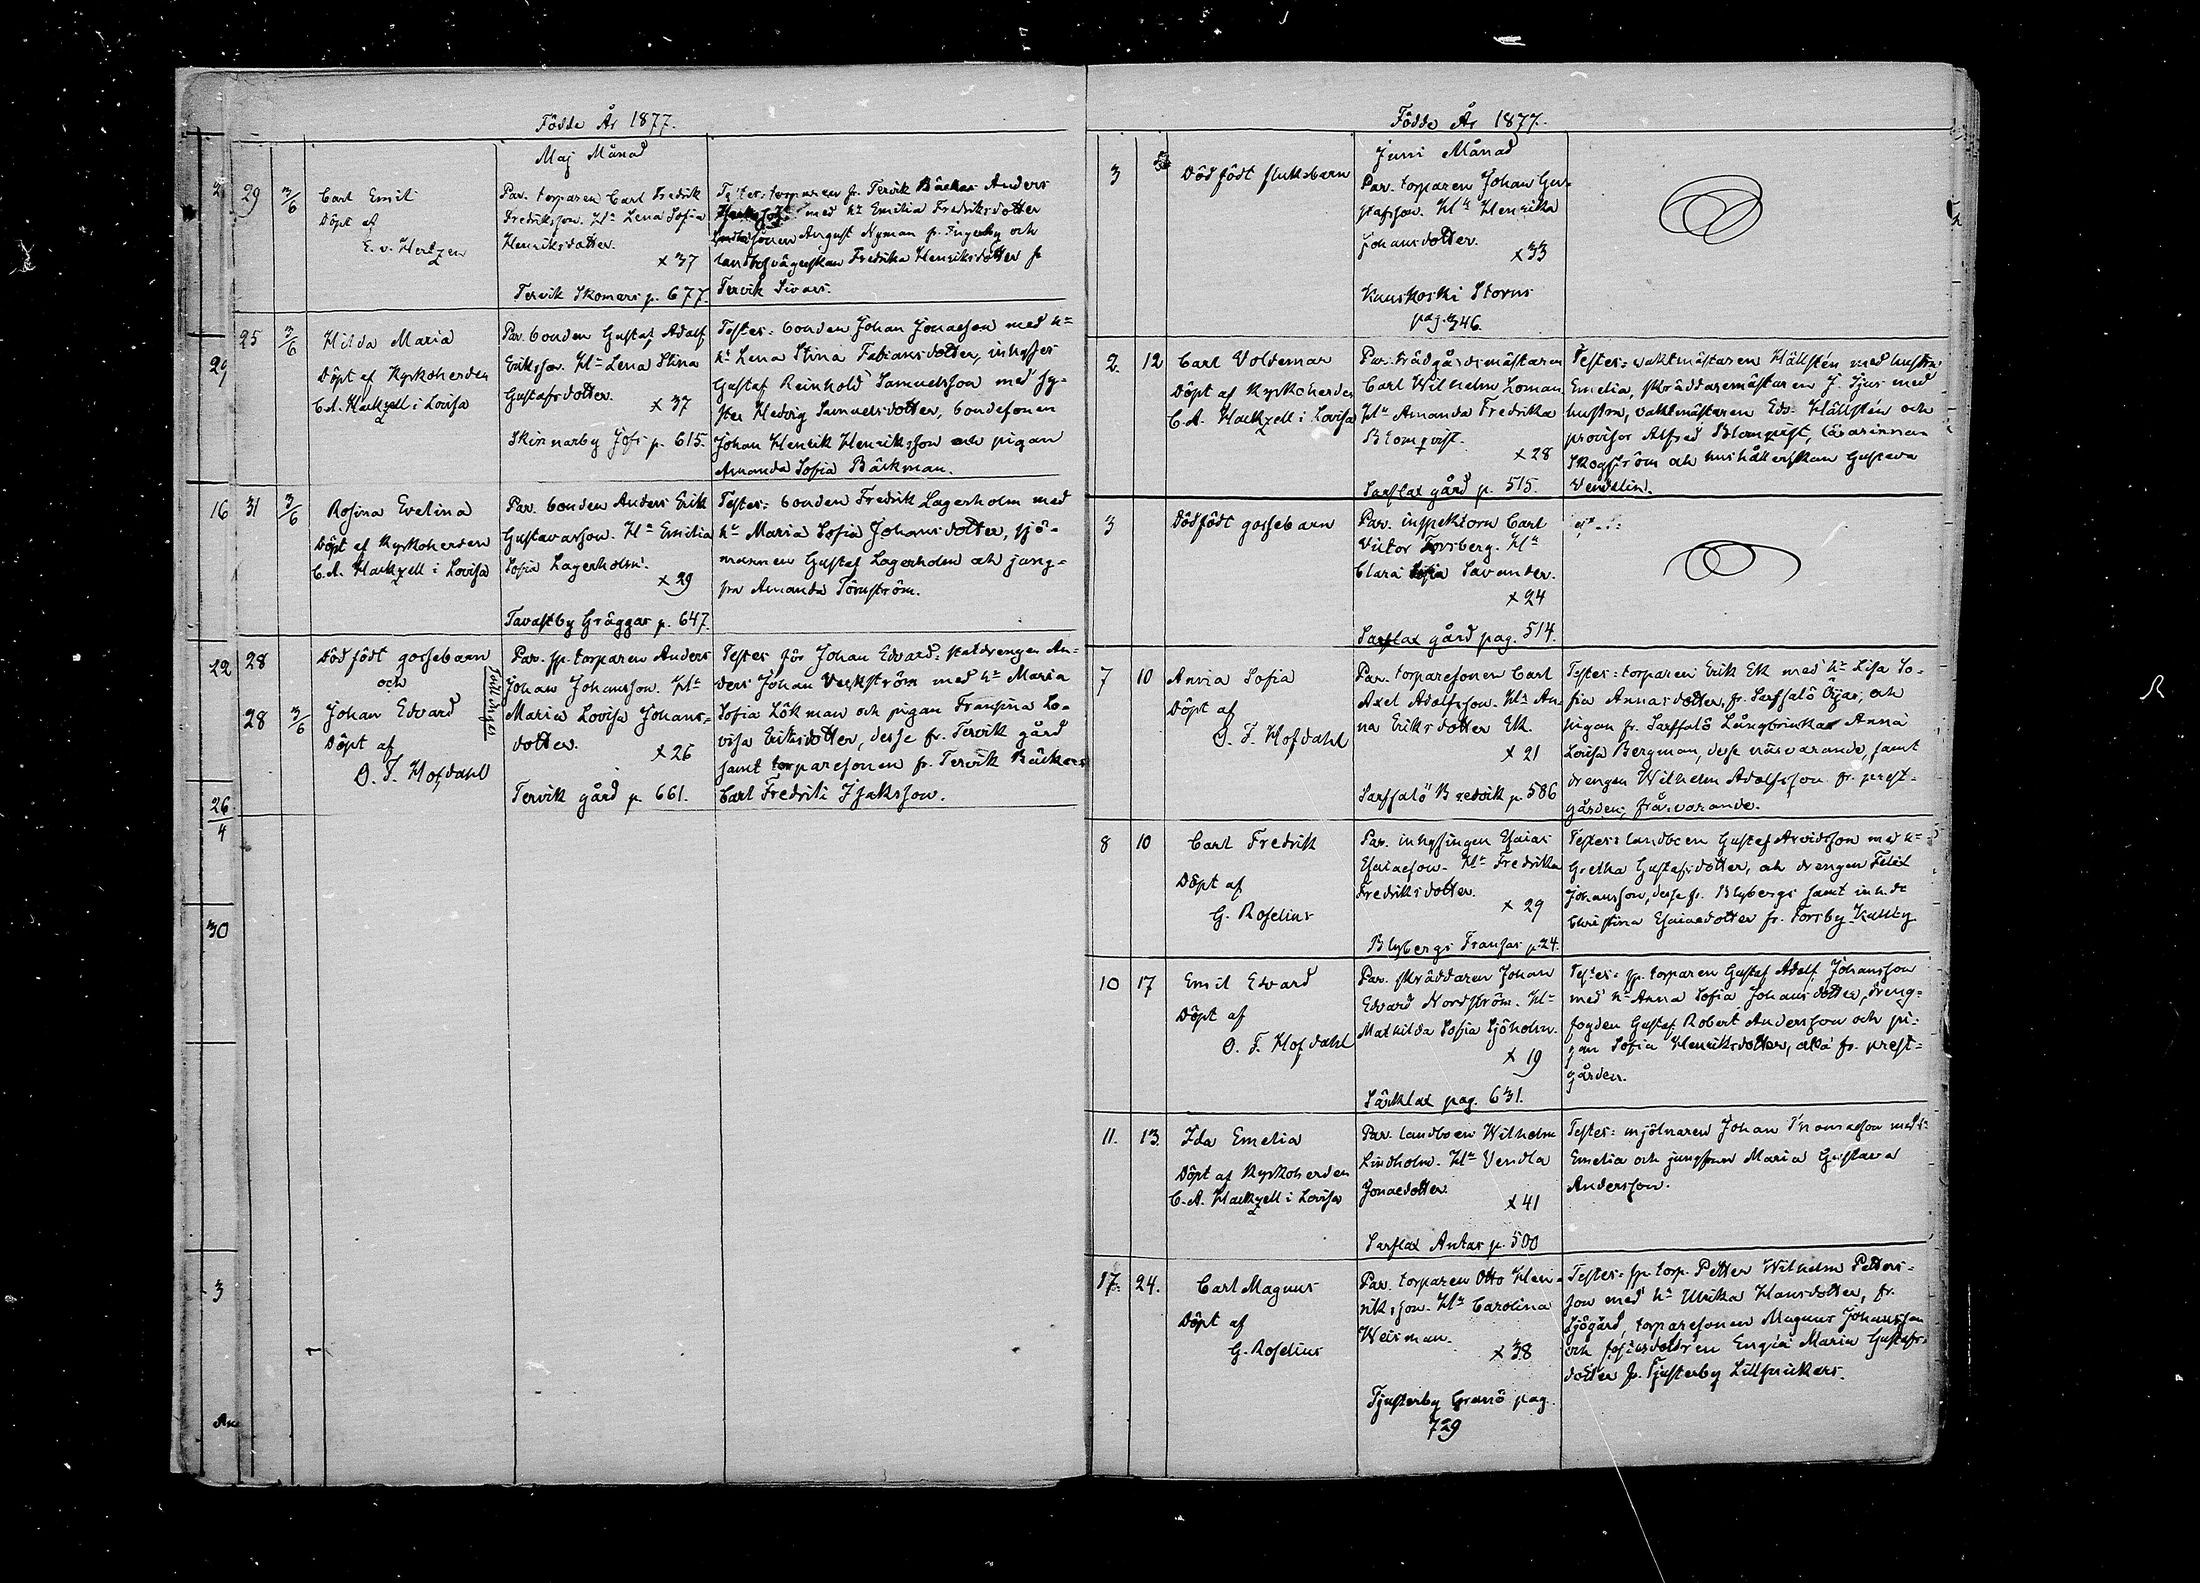 Födde År 1877.
Maj Månad
29 3/6
Carl Emil
Döpt af
E. v. Hertzen
Par. torparen Carl Fredrik
Fredriksson. H:u Lena Sofia
Henriksdotter.
x 37
Tervik Skomars p. 677.
Testes: torparen fr. Tervik Bäckas Anders
med h:u Emilia Fredriksdotter
sonen August Nyman fr. Ingerby och
Fredrika Henriksdotter fr
Tervik Sivars.
25 3/6
Hilda Maria
Döpt af Kyrkoherden
C. A. Hackzell i Lovisa
Par. bonden Gustaf Adolf
Eriksson. H:u Lena Stina
Gustafsdotter.
x 37
Skinnarby Jofs p. 615.
Testes: bonden Johan Jonaeson med h:u
h:u Lena Stina Fabiansdotter, inhyses
Gustaf Reinhold Samuelsson med sy-
ster Hedvig Samuelsdotter, bondesonen
Johan Henrik Henriksson och pigan
Amanda Sofia Bäckman.
31 3/6
Rosina Evelina
Döpt af Kyrkoherden
C. A. Hackzell i Lovisa
Par. bonden Anders Erik
Gustavasson. H:u Emilia
Sofia Lagerholm.
x 29
Tavastby Gräggas p. 647.
Testes: bonden Fredrik Lagerholm med
h:u Maria Sofia Johansdotter, sjö-
mannen Gustaf Lagerholm och jung-
fru Amanda Törnström.
28
Dödfödt gossebarn
och
28 3/6
Johan Edvard
Döpt af
O. F. Hofdahl
tvillingar
Par. sp. torparen Anders
Johan Johansson. H:u
Maria Lovisa Johans-
dotter.
x 26
Tervik gård p. 661.
Testes för Johan Edvard: statdrengen An-
ders Johan Veckström med h:u Maria
Sofia Lökman och pigan Fransina Lo-
visa Eriksdotter, desse fr. Tervik gård
samt torparesonen fr. Tervik Bäckers
Carl Fredrik Isaksson.
2
29
16
22
26
4
30
3
Födde År 1877.
Juni Månad
3
Dödfödt flickebarn
Par. torparen Johan Gu-
stafsson. H:u Henrika
Johansdotter.
x 33
Kuuskoski Storns
pag. 346.
2. 12
Carl Voldemar
Döpt af Kyrkoherden
C. A. Hackzell i Lovisa
Par. trädgårdsmästaren
Carl Wilhelm Loman
H:u Amanda Fredrika
Blomqvist.
x 28
Sarflax gård p. 515.
Testes: vaktmästaren Hällstén med hustru
Emelia, skräddaremästaren J. Sjus med
hustru, vaktmästaren Edv. Hällstén och
provisor Alfred Blomqvist, lärarinnan
Skogström och hushållerskan Gustava
Vendelin.
3
Dödfödt gossebarn
Par. inspektorn Carl
Victor Forsberg. H:u
Clara Sofia Savander.
x 24
Sarflax gård pag. 514.
7 10
Anna Sofia
Döpt af
O. F. Hofdahl
Par. torparesonen Carl
Axel Adolfsson. H:u An-
na Eriksdotter Ek.
x 21
Sarfsalö Bredvik p. 586
Testes: torparen Erik Ek med h:u Lisa So-
fia Annasdotter, fr. Sarfsalö Öjjas, och
pigan fr. Sarfsalö Långbrinkas Anna
Lovisa Bergman, desse närvarande, samt
drengen Wilhelm Adolfsson fr. prest-
gården, frånvarande.
8 10
Carl Fredrik
Döpt af
G. Roselius
Par. inhysingen Esaias
Esaiaeson. H:u Fredrika
Fredriksdotter.
x 29
Blybergs Fransas p. 24.
Testes: landboen Gustaf Arvidsson med h:u
Gretha Gustafsdotter, och drengen Felix
Johansson, desse fr. Blybergs samt inh. dr
Christina Esaiaedotter fr. Forsby Kullby
10 17
Emil Edvard
Döpt af
O. F. Hofdahl
Par. skräddaren Johan
Edvard Nordström. H:u
Mathilda Sofia Sjöholm.
x 19
Särklax pag. 631.
Testes: sp. torparen Gustaf Adolf Johansson
med h:u Anna Sofia Johansdotter, dreng-
fogden Gustaf Robert Andersson och pi-
gan Sofia Henriksdotter, alla fr. prest-
gården.
11. 13.
Ida Emelia
Döpt af Kyrkoherden
C. A. Hackzell i Lovisa
Par. landboen Wilhelm
Lindholm. H:u Vendla
Jonaedotter.
x 41
Sarflax Antas p. 500
Testes: mjölnaren Johan Thomaeson med h:u
Emelia och jungfrun Maria Gustava
Andersson.
17. 24.
Carl Magnus
Döpt af
G. Roselius
Par. torparen Otto Hen-
riksson. H:u Carolina
Weisman.
x 38
Tjusterby Granö pag.
729
Testes: sp. torp. Petter Wilhelm Petters-
son med h:u Ulrika Hansdotter, fr.
Sjögård, torparesonen Magnus Johansson
och Maria Gustafs-
dotter fr. Tjusterby Lillprickers.